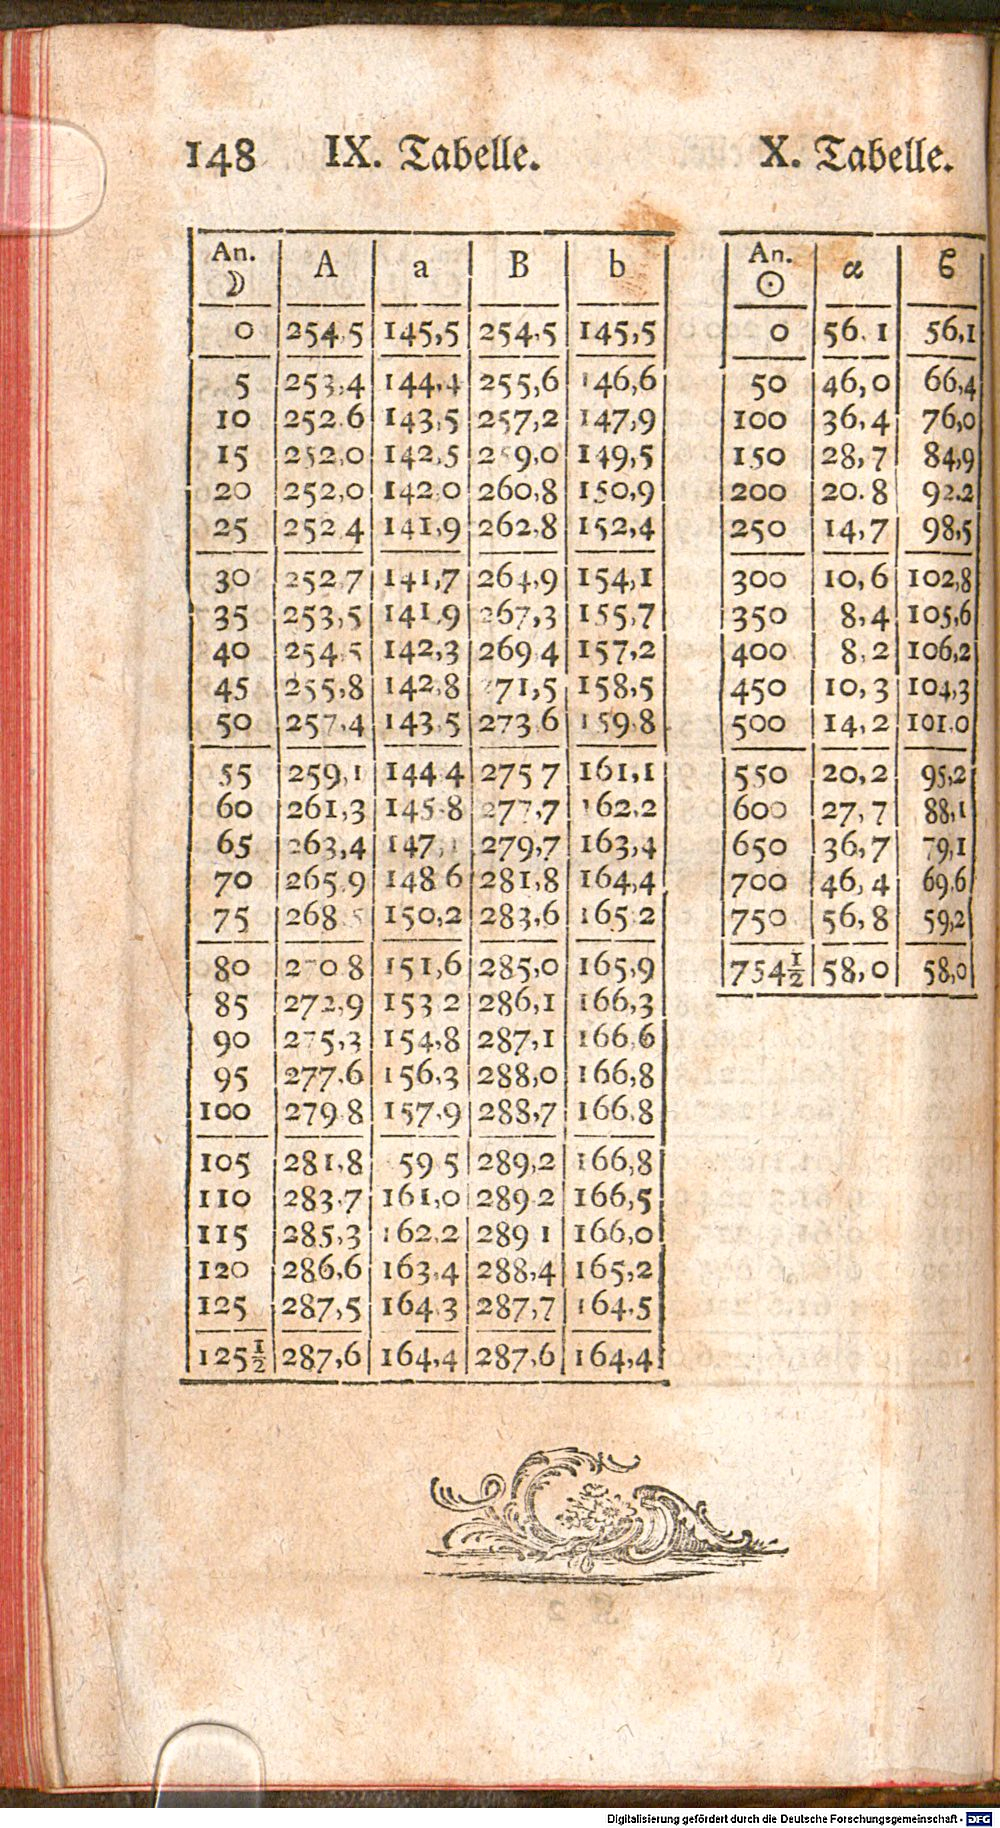 148 IX. Tabelle. X. Tabelle.
An. ☽ A a B b
0 254,5 145,5 254,5 145,5
5 253,4 144,4 255,6 146,6
10 252.6 143,5 257,2 147,9
15 252,0 142,5 259,0 149,5
20 252,0 142,0 260,8 150,9
25 252 4 141,9 262,8 152,4
30 252 7 141,7 264,9 154,1
35 253,5 141,9 267,3 155,7
40 254 5 142,3 269 4 157,2
45 255,8 142,8 271,5 158,5
50 257,4 143,5 273 6 159,8
55 259,1 144 4 275 7 161,1
60 261,3 145,8 277,7 162,2
65 263,4 147, 279,7 163,4
70 265,9 148 6 281,8 164,4
75 268 5 150,2 283,6 165 2
80 270 8 151,6 285,0 165,9
85 272,9 153 2 286,1 166,3
90 275,3 154,8 287,1 166,6
95 277,6 156,3 288,0 166,8
100 279 8 157,9 288,7 166,8
105 281,8 59 5 289,2 166,8
110 283,7 161,0 289 2 166,5
115 285,3 162,2 289 1 166,0
120 286,6 163,4 288,4 165,2
125 287,5 164,3 287,7 164,5
125½ 287,6 164,4 287,6 164,4
An. ☉ α ϐ
0 56. 1 56,1
50 46,0 66,4
100 36,4 76,0
150 28,7 84,9
200 20.8 92.2
250 14,7 98,5
300 10,6 102,8
350 8,4 105,6
400 8,2 106,2
450 10,3 104,3
500 14,2 101,0
550 20,2 95,2
600 27,7 88,1
650 36,7 79,1
700 46,4 69,6
750 56,8 59,2
754½ 58,0 58,0
Digitalisierung gefördert durch die Deutsche Forschungsgemeinschaft - DFG